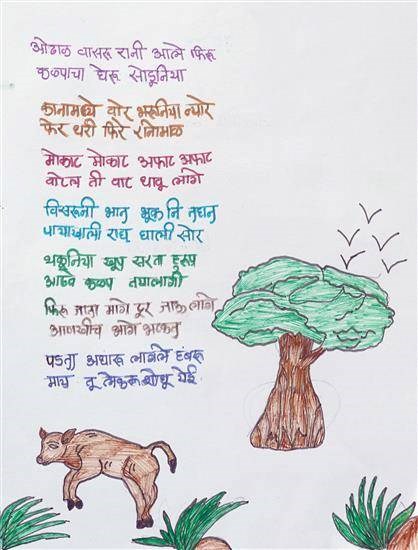 ओढाळ वासरू रानी आले फिरू
कळपाचा घेरू सोडूनिया
कानामध्ये वारे भरूनिया न्यारे
फेर धरी फिरे रानोमाळ
मोकाट मोकाट अफाट अफाट
वाटेल ती वाट धावू लागे
विसरूनी भान भूक नि तहान
पायाखाली रान घाली सारे
थकूनिया खूप सरता हुरूप
आठवे कळप तयालागी
फिरू जाता मागे दूर जाऊ लागे
आणखीच भागे भटकत
पडता अंधारू लागले हंबरू
माय तू लेकरू शोधू येई